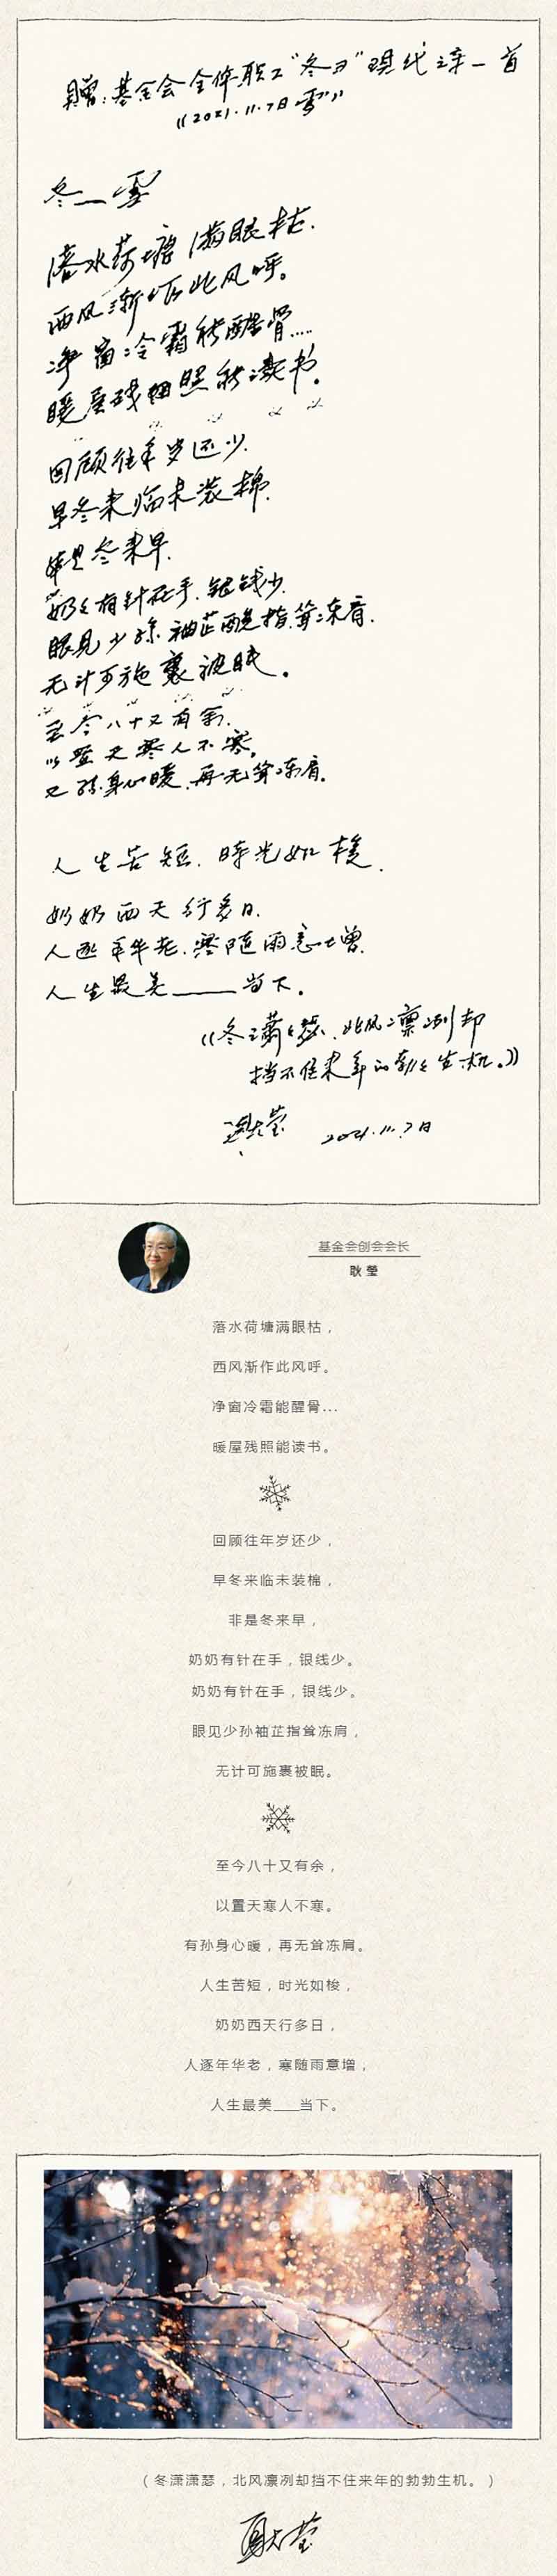 赠：基金会全体职工“冬日”现代诗一首
《2021.11.7日雪》
冬—雪
落水荷塘满眼枯.
西风渐作此风呼。
净窗冷霜能醒骨……
暖屋残烟照能读书.
回顾往年岁还少.
早冬来临未装棉.
非是冬来早.
奶奶有针在手.银线少.
眼见少孙袖芷酸指.耸冻肩.
无计可施裹被眠。
至今八十又有余.
以置天寒人不寒。
又孙身心暖.再无耸冻肩.
人生苦短.时光如梭.
奶奶西天行多日.
人逐年华老.寒随雨意增.
人生最美——当下.
《冬潇潇瑟.北风凛冽却
挡不住来年的勃勃生机。》
2021.11.7日
基金会创会会长
耿莹
落水荷塘满眼枯，
西风渐作此风呼。
净窗冷霜能醒骨...
暖屋残照能读书。
回顾往年岁还少，
早冬来临未装棉，
非是冬来早，
奶奶有针在手，银线少。
奶奶有针在手，银线少。
眼见少孙袖芷指耸冻肩，
无计可施裹被眠。
至今八十又有余，
以置天寒人不寒。
有孙身心暖，再无耸冻肩。
人生苦短，时光如梭，
奶奶西天行多日，
人逐年华老，寒随雨意增，
人生最美___当下。
（冬潇潇瑟，北风凛冽却挡不住来年的勃勃生机。）